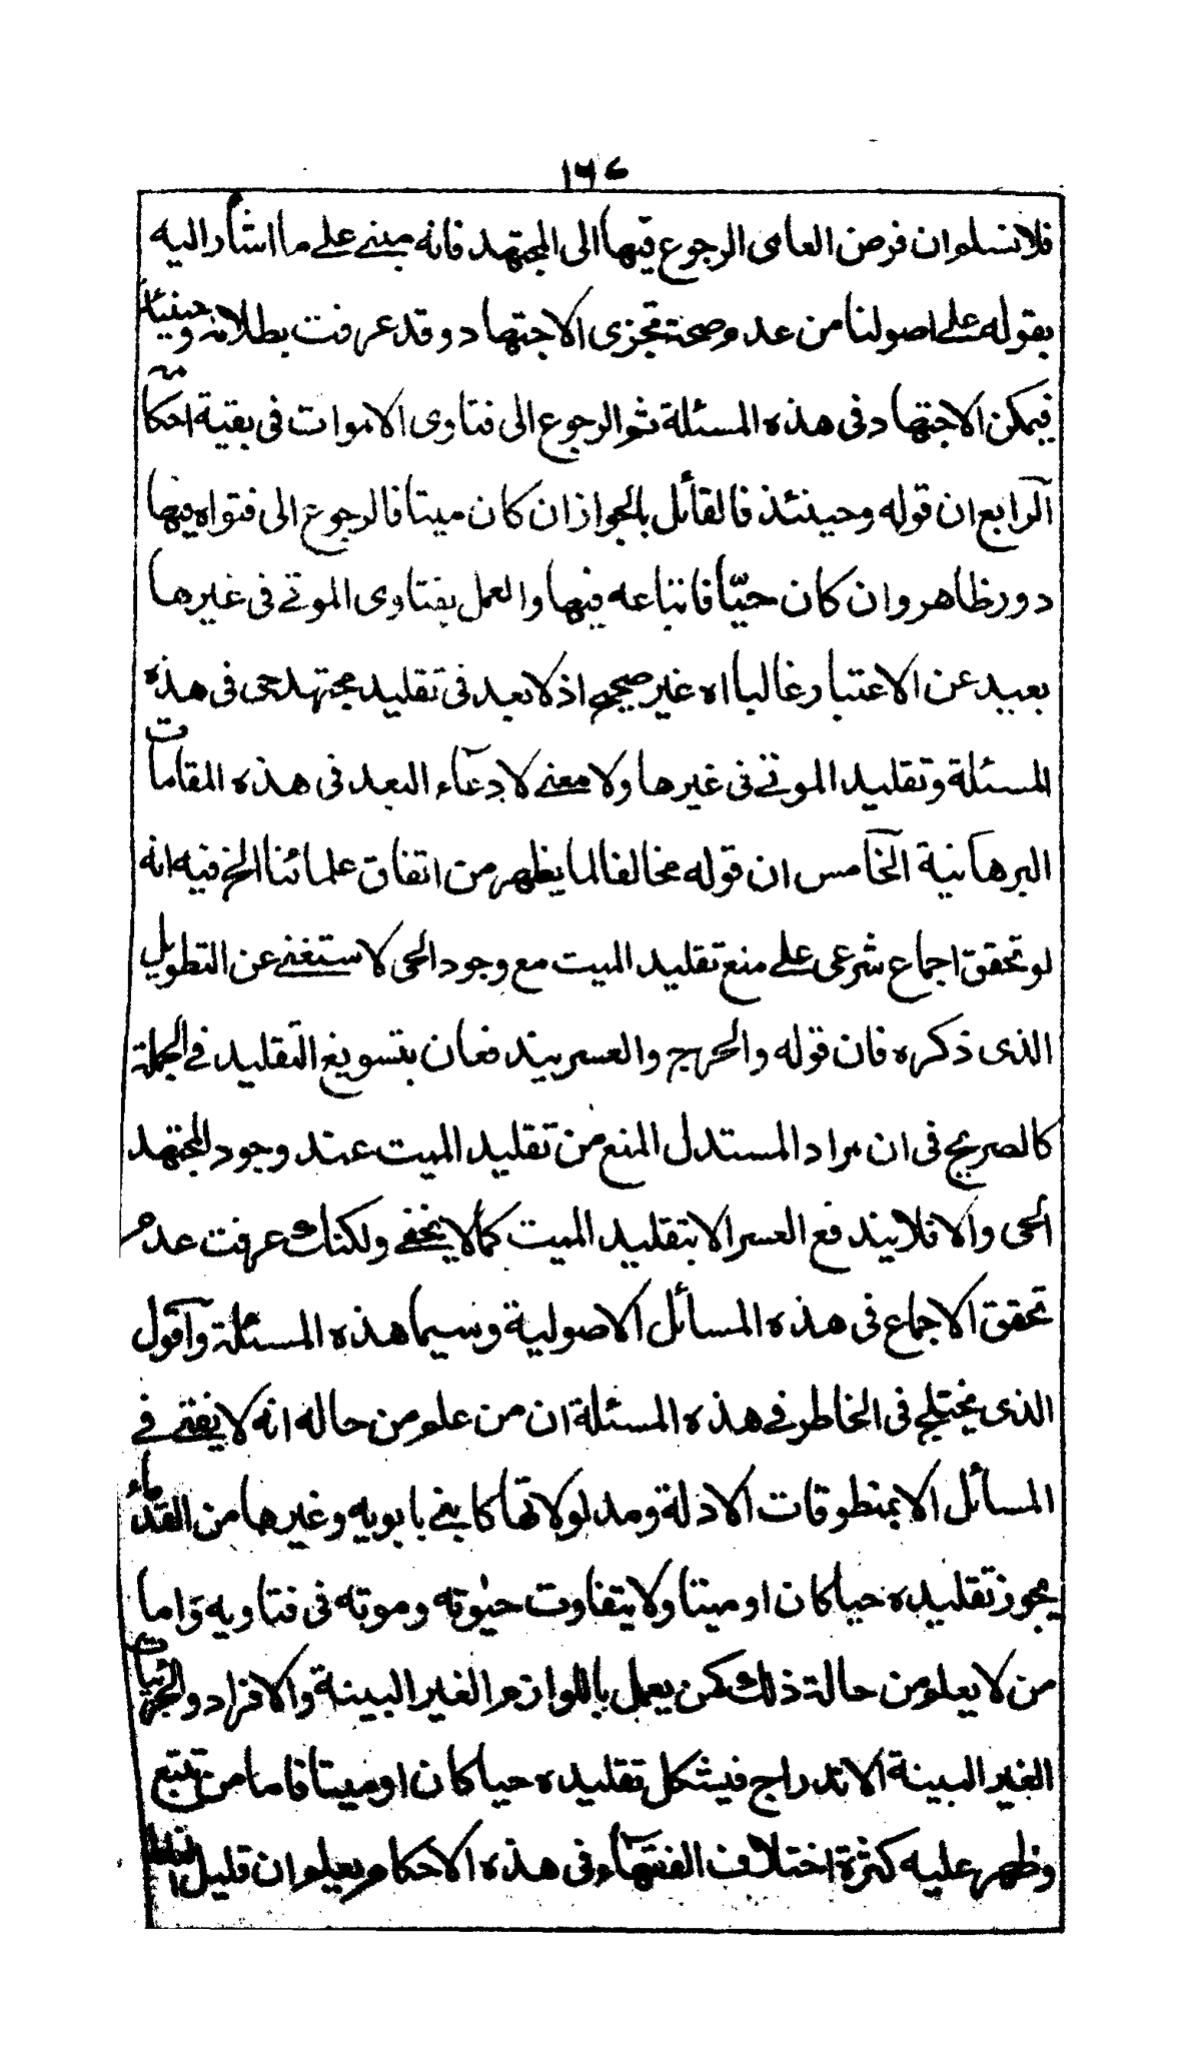 ١٦٧
فلا نسلم ان فرض العامى الرجوع فيها الى المجتهد فانه مبنى على ما اشار اليه
بقوله على اصولنا من عدم صحة تجزى الاجتهاد وقد عرفت بطلانه وحينئذ
فيمكن الاجتهاد فى هذه المسئلة ثم الرجوع الى فتاوى الاموات فى بقية احكامه
الرابع ان قوله وحينئذ فالقائل بالجواز ان كان ميتا فالرجوع الى فتواه فيها
دور ظاهر وان كان حيّا فاتباعه فيها والعمل بفتاوى الموتى فى غيرها
بعيد عن الاعتبار غالبا اه غير صحيح اذ لا بعد فى تقليد مجتهد حى فى هذه
المسئلة وتقليد الموتى فى غيرها ولا معنى لادعآء البعد فى هذه المقامات
البرهانية الخامس ان قوله مخالفا لما يظهر من اتفاق علمائنا الخ فيه انه
لو تحقق اجماع شرعى على منع تقليد الميت مع وجود الحى لاستغنى عن التطويل
الذى ذكره فان قوله والحرج والعسر يندفعان بتسويغ التقليد فى الجملة
كالصريح فى ان مراد المستدل المنع من تقليد الميت عند وجود المجتهد
الحى والا فلا يندفع العسر الا بتقليد الميت كما لا يخفى ولكنك عرفت عدم
تحقق الاجماع فى هذه المسائل الاصولية وسيما هذه المسئلة وآقول
الذى يختلج فى الخاطر فى هذه المسئلة ان من علم من حاله انه لا يفتى فى
المسائل الا بمنطوقات الادلة ومدلولاتها كابنى بابويه وغيرها من القدماء
يجوز تقليده حيا كان او ميتا ولا يتفاوت حيوته وموته فى فتاويه واما
من لا يعلم من حالة ذلك كمن يعمل باللوازم الغير البينة والافراد والجزئيات
الغير البينة الاندراج فيشكل تقليده حيا كان او ميتا فاما من تتبع
وظهر عليه كثرة اختلاف الفقهآء فى هذه الاحكام يعلم ان قليل